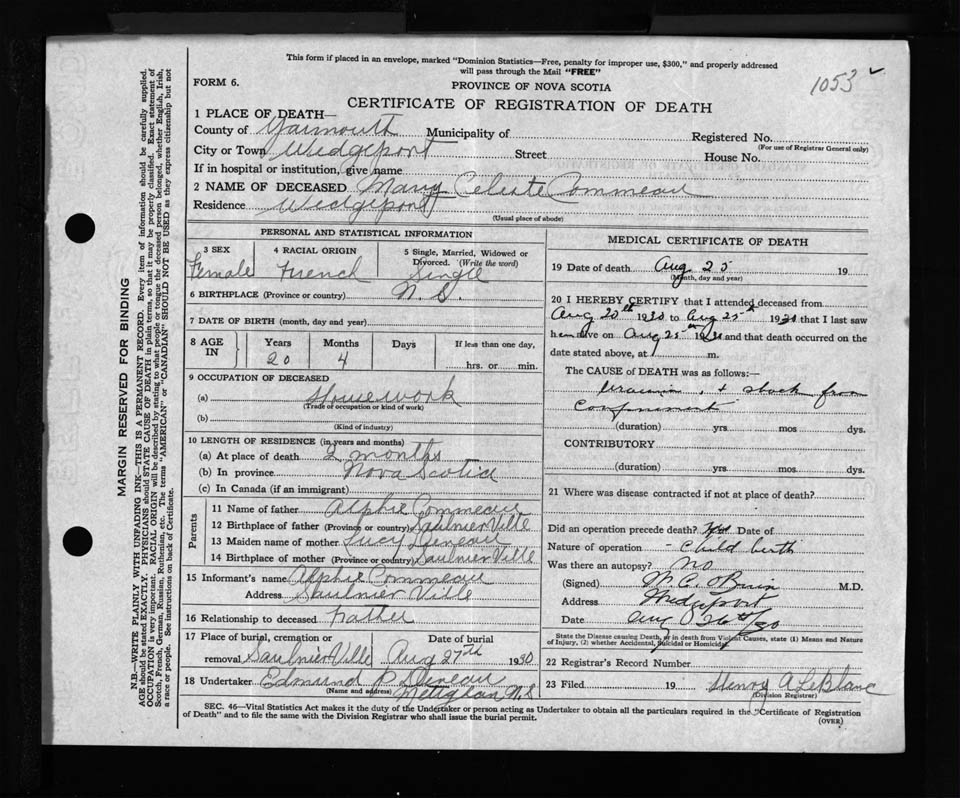 This form if placed in an envelope, marked "Dominion Statistics—Free, penalty for improper use, $300," and properly addressed
will pass through the Mail "FREE"
1053
FORM 6.
PROVINCE OF NOVA SCOTIA
CERTIFICATE OF REGISTRATION OF DEATH
1 PLACE OF DEATH—
County of Yarmouth Municipality of
Registered No.
(For use of Registrar General only)
City or Town Wedgeport Street House No.
If in hospital or institution, give name
2 NAME OF DECEASED Mary Celeste Commeau
Residence Wedgeport
(Usual place of abode)
PERSONAL AND STATISTICAL INFORMATION
3 SEX
Female
4 RACIAL ORIGIN
French
5 Single, Married, Widowed or
Divorced. (Write the word)
Single
6 BIRTHPLACE (Province or country) N. S.
7 DATE OF BIRTH (month, day and year)
8 AGE IN
Years Months Days If less than one day,
20 4
hrs. or min.
9 OCCUPATION OF DECEASED
(a) Housework
(Trade or occupation or kind of work)
(b)
(Kind of industry)
10 LENGTH OF RESIDENCE (in years and months)
(a) At place of death 2 months
(b) In province Nova Scotia
(c) In Canada (if an immigrant)
Parents
11 Name of father Alphie Commeau
12 Birthplace of father (Province or country) Saulnier Ville
13 Maiden name of mother Lucy Deveau
14 Birthplace of mother (Province or country) Saulnier Ville
15 Informant's name Alphie Commeau
Address Saulnier Ville
16 Relationship to deceased Father
17 Place of burial, cremation or Date of burial
removal Saulnier Ville Aug 27th 1930
18 Undertaker Edmund P Deveau
(Name and address) Meteghan N.S
MEDICAL CERTIFICATE OF DEATH
19 Date of death Aug 25 19
(Month, day and year)
20 I HEREBY CERTIFY that I attended deceased from
Aug 20th 1930 to Aug 25th 1930 that I last saw
h alive on Aug 25th 1930 and that death occurred on the
date stated above, at m.
The CAUSE of DEATH was as follows:—
Uraemia, + shock from
Confinement
(duration) yrs mos dys.
CONTRIBUTORY
(duration) yrs mos dys.
21 Where was disease contracted if not at place of death?
Did an operation precede death? Date of
Nature of operation - child birth
Was there an autopsy? NO
(Signed) M.D.
Address Wedgeport
Date Aug 26th/30
State the Disease causing Death, or in death from Violent Causes, state (1) Means and Nature
of Injury, (2) whether Accidental, Suicidal or Homicidal.
22 Registrar's Record Number
23 Filed 19 Henry A LeBlanc
(Division Registrar)
SEC. 46—Vital Statistics Act makes it the duty of the Undertaker or person acting as Undertaker to obtain all the particulars required in the "Certificate of Registration
of Death" and to file the same with the Division Registrar who shall issue the burial permit.
(OVER)
MARGIN RESERVED FOR BINDING
N.B—WRITE PLAINLY WITH UNFADING INK—THIS IS A PERMANENT RECORD. Every item of information should be carefully supplied.
AGE should be stated EXACTLY. PHYSICIANS should STATE CAUSE OF DEATH in plain terms, so that it may be properly classified. Exact statement of
OCCUPATION is very important. RACIAL ORIGIN will be described by stating to what people or tongue the deceased person belonged, whether English, Irish,
Scotch, French, German, Russian, Ruthenian, etc. The terms "AMERICAN" or "CANADIAN" SHOULD NOT BE USED as they express citizenship but not
a race or people. See instructions on back of Certificate.